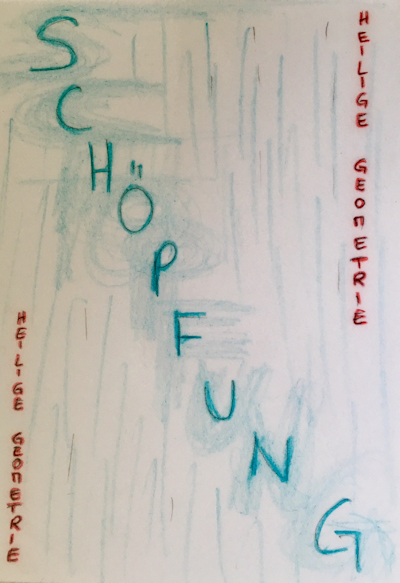 SCHÖPFUNG
HEILIGE GEOMETRIE
HEILIGE GEOMETRIE